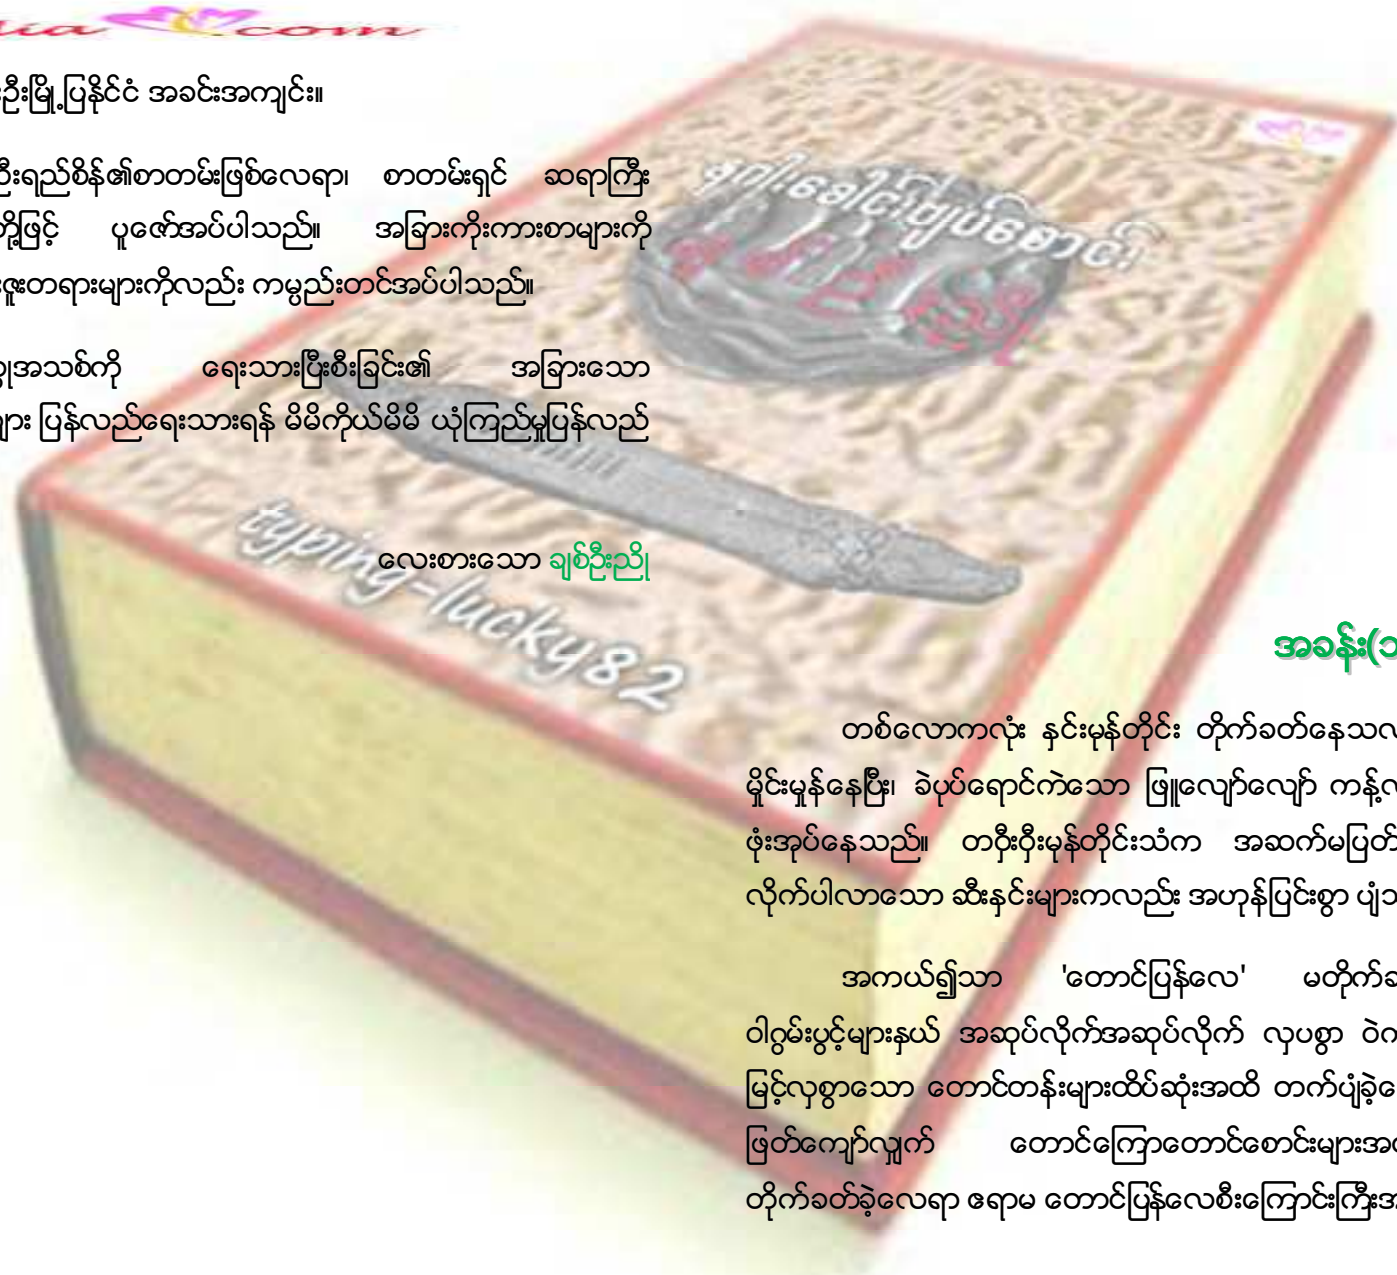 com
ဦးမြို့ပြနိုင်ငံ အခင်းအကျင်း။
ဦးရည်စိန်၏စာတမ်းဖြစ်လေရာ၊ စာတမ်းရှင် ဆရာကြီး
တို့ဖြင့် ပူဇော်အပ်ပါသည်။ အခြားကိုးကားစာများကို
ဇူးတရားများကိုလည်း ကမ္ပည်းတင်အပ်ပါသည်။
အသစ်ကို ရေးသားပြီးစီးခြင်း၏ အခြားသော
များ ပြန်လည်ရေးသားရန် မိမိကိုယ်မိမိ ယုံကြည်မှုပြန်လည်
လေးစားသော ချစ်ဦးညို
typing-lucky82
အခန်း(
တစ်လောကလုံး နှင်းမုန်တိုင်း တိုက်ခတ်နေသလ
မှိုင်းမှုန်နေပြီး၊ ခဲပုပ်ရောင်ကဲသော ဖြူလျော်လျော် ကန့်လ
ဖုံးအုပ်နေသည်။ တဝှီးဝှီးမုန်တိုင်းသံက အဆက်မပြတ်
လိုက်ပါလာသော ဆီးနှင်းများကလည်း အဟုန်ပြင်းစွာ ပျံသ
အကယ်၍သာ 'တောင်ပြန်လေ' မတိုက်ခ
ဝါဂွမ်းပွင့်များနှယ် အဆုပ်လိုက်အဆုပ်လိုက် လှပစွာ ဝဲက
မြင့်လှစွာသော တောင်တန်းများထိပ်ဆုံးအထိ တက်ပျံခဲ့လေ
ဖြတ်ကျော်လျှက် တောင်ကြောတောင်စောင်းများအ
တိုက်ခတ်ခဲ့လေရာ ဧရာမ တောင်ပြန်လေစီးကြောင်းကြီးအ